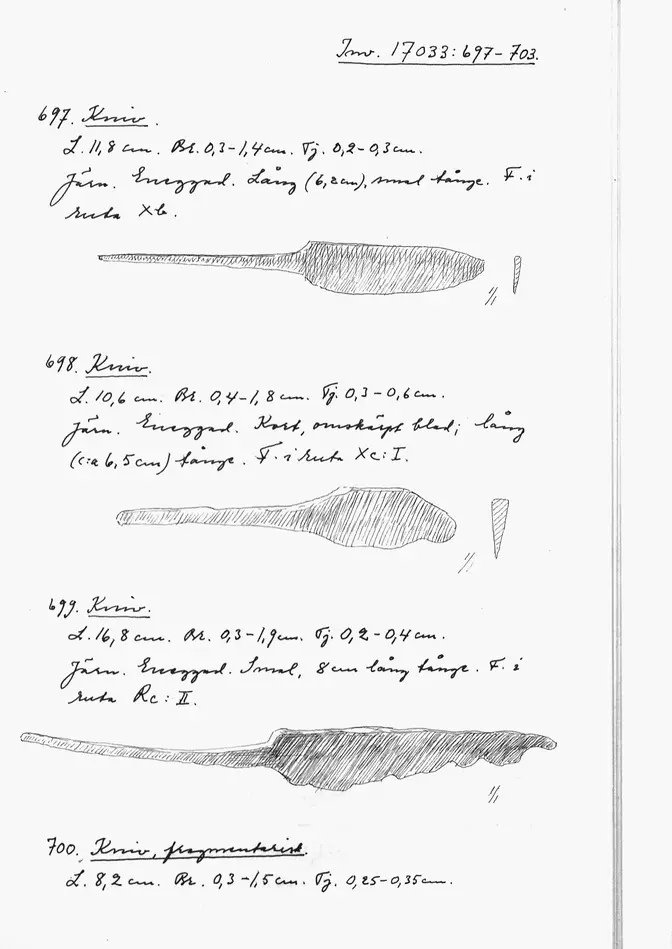 Inv. 17033:697-703.
697. Kniv.
L. 11,8 cm. Br. 0,3-1,4 cm. Tj. 0,2-0,3 cm.
Järn. Eneggad. Lång (6,2 cm), smal tånge. F. i
ruta Xb.
1/1
698. Kniv.
L. 10,6 cm. Br. 0,4-1,8 cm. Tj. 0,3-0,6 cm.
Järn. Eneggad. Kort, omskärpt blad; lång
(c:a 6,5 cm) tånge. F. i ruta Xc:I.
1/1
699. Kniv.
L. 16,8 cm. Br. 0,3-1,9 cm. Tj. 0,2-0,4 cm.
Järn. Eneggad. Smal, 8 cm lång tånge. F. i
ruta Rc:II.
1/1
700. Kniv, fragmentarisk.
L. 8,2 cm. Br. 0,3-1,5 cm. Tj. 0,25-0,35 cm.